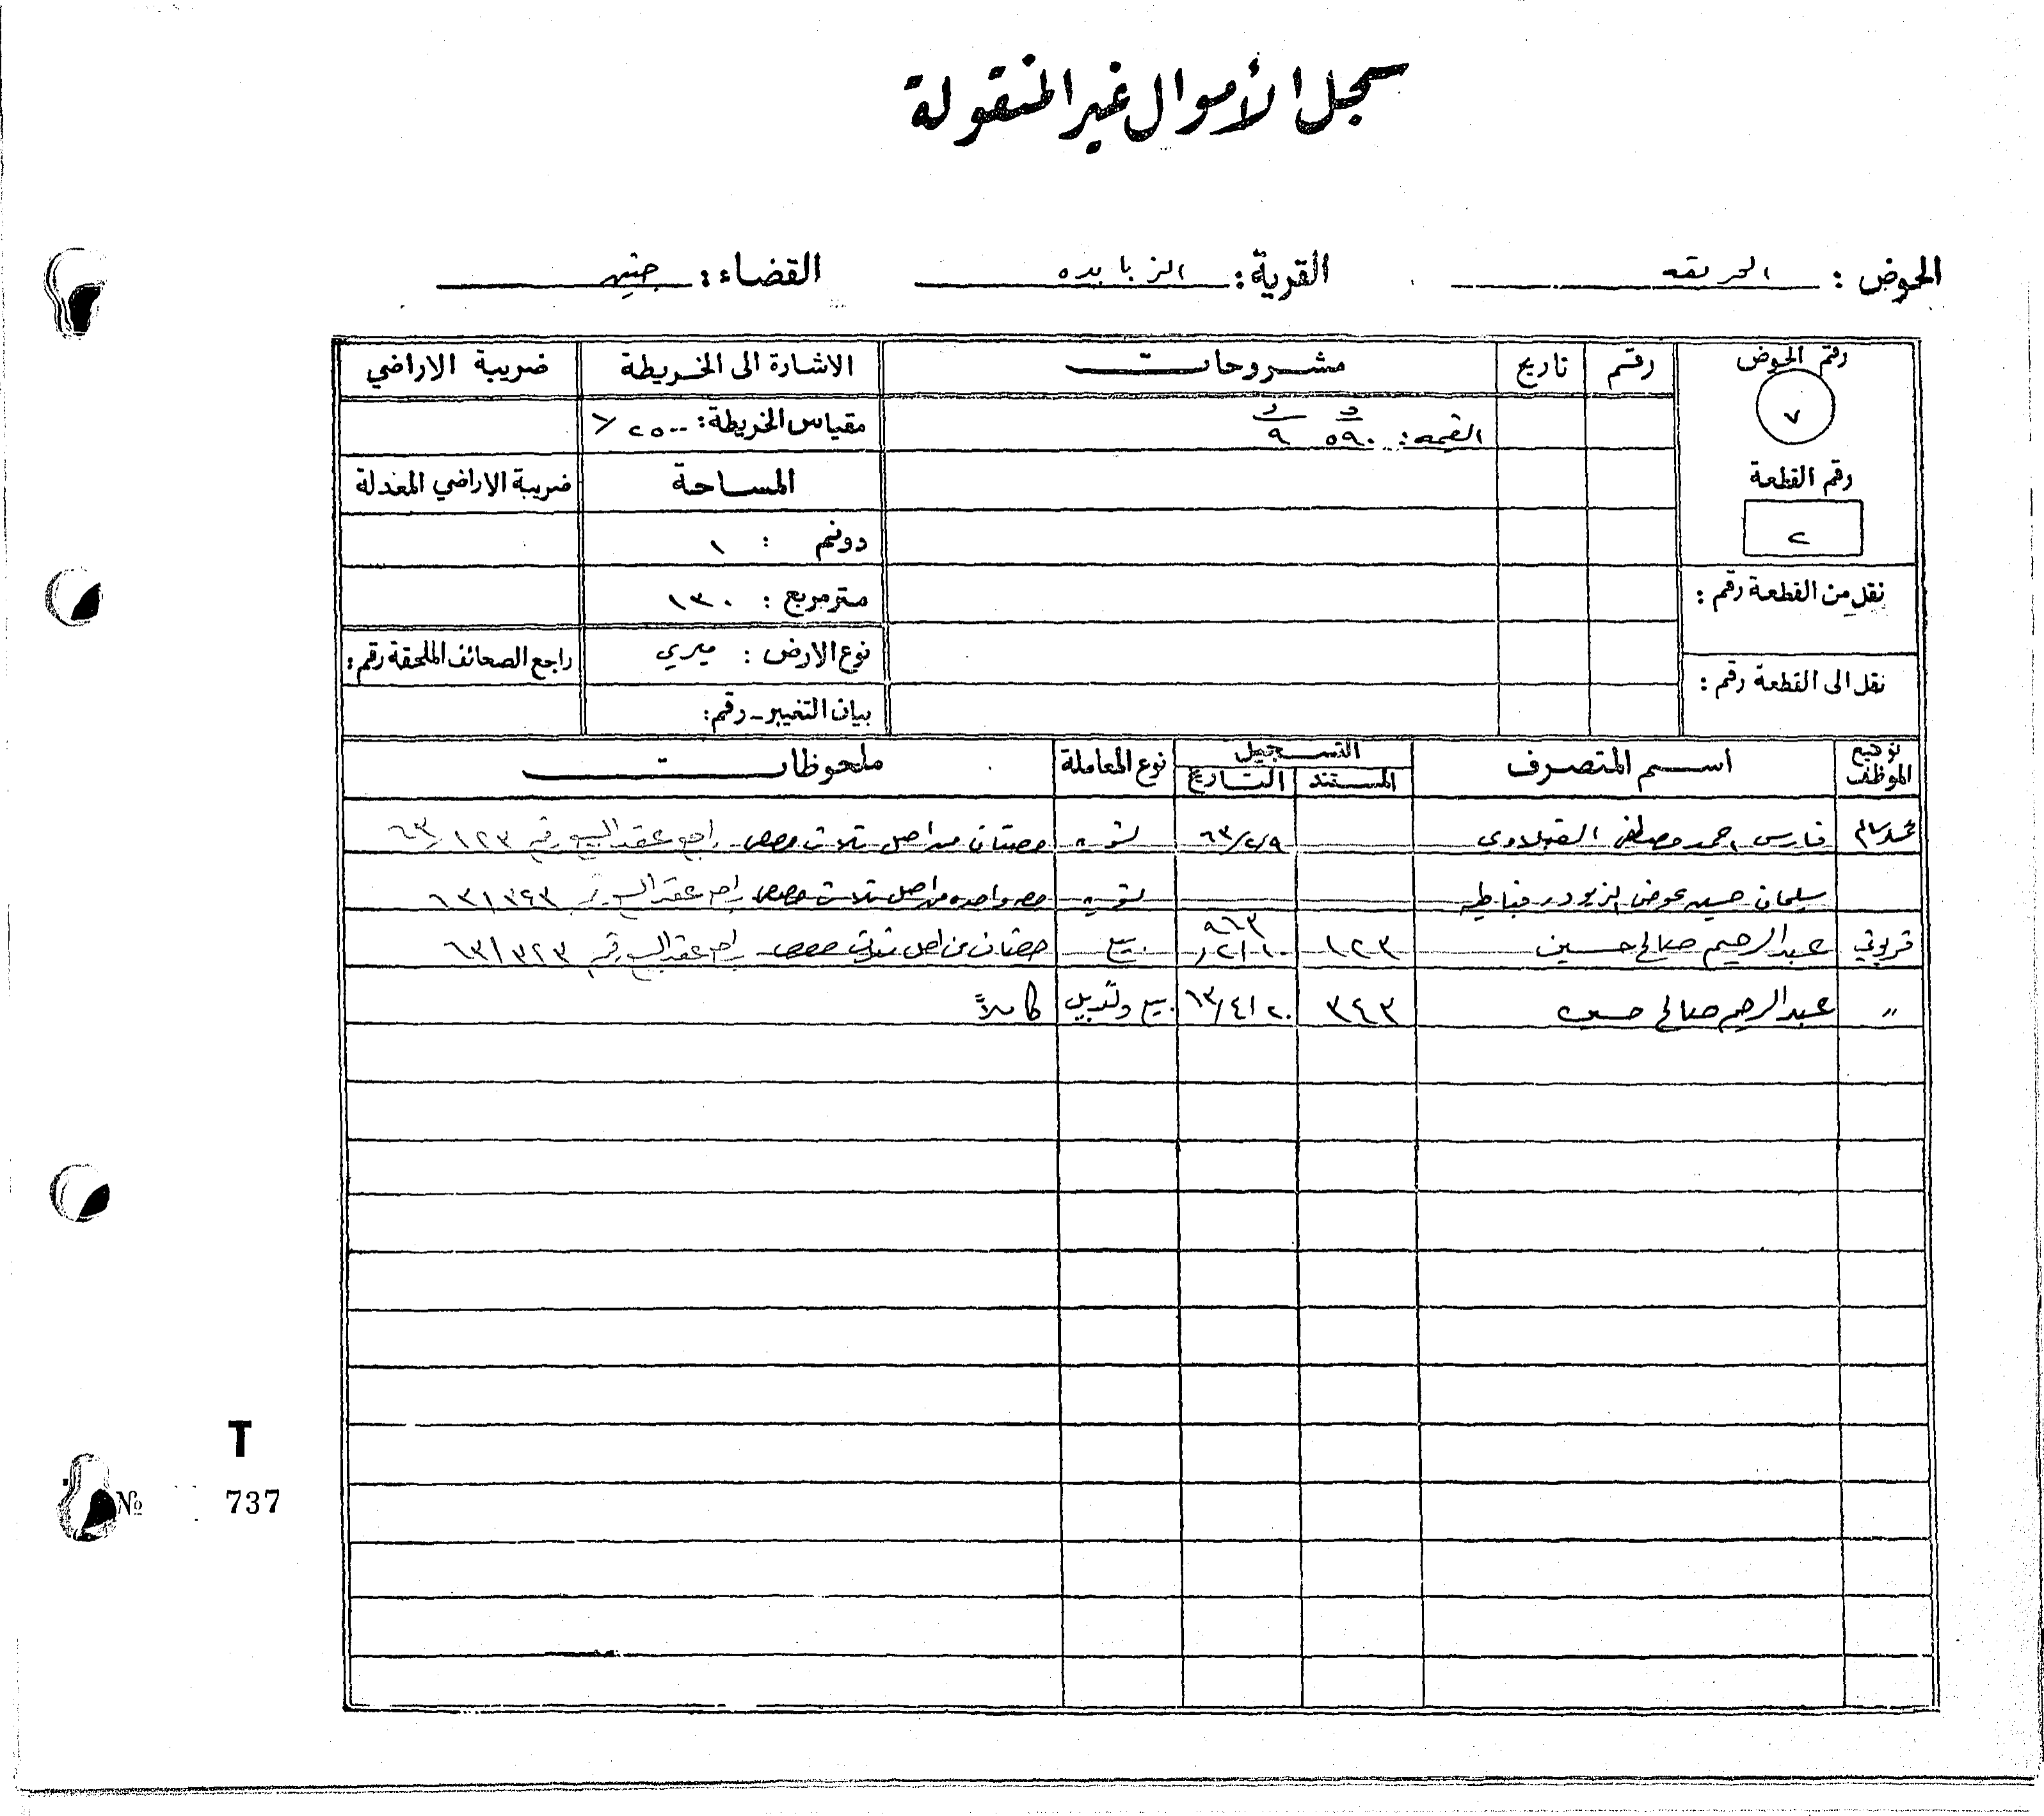 سجل الأموال غير المنقولة
الحوض : الحريقه القرية : الزبابده القضاء : جنين
رقم الحوض رقم تاريخ مشروحات الاشارة الى الخريطة ضريبة الاراضي
٧ القيمه : ٥٩٠ د ٩ د مقياس الخريطة : ٢٥٠٠
رقم القطعة المساحة ضريبة الاراضي المعدلة
٢ دونم : ١
نقل من القطعة رقم : متر مربع : ١٣٠
نوع الارض : ميري راجع الصحائف الملحقة رقم :
نقل الى القطعة رقم : بيان التغيير - رقم :
توقيع الموظف اســم المتصرف التسجيل نوع المعاملة ملحوظات
المستند التاريخ
محمد سالم فارس احمد مصطفى ٦٣/٢/٩ تسويه حصتان من اصل ثلاث حصص راجع عقد البيع رقم ٦٣/١٢٣
سليمان حسين عوض تسويه حصه واحده من اصل ثلاث حصص راجع عقد البيع رقم ٦٣/٣٤٣
عبد الرحيم صالح حسين ١٢٣ ٩٦٣/٢/١٠ بيع حصتان من اصل ثلاث حصص راجع عقد البيع رقم ٦٣/٣٢٣
〃 عبد الرحيم صالح حسين ٣٤٣ ٦٣/٤/٢٠ بيع وتبديل كاملاً
T
№ 737